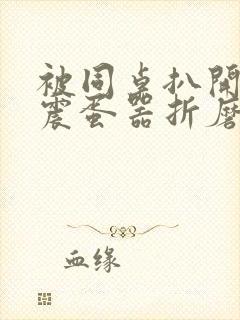 被同桌扒開
震蛋器折磨
血缘